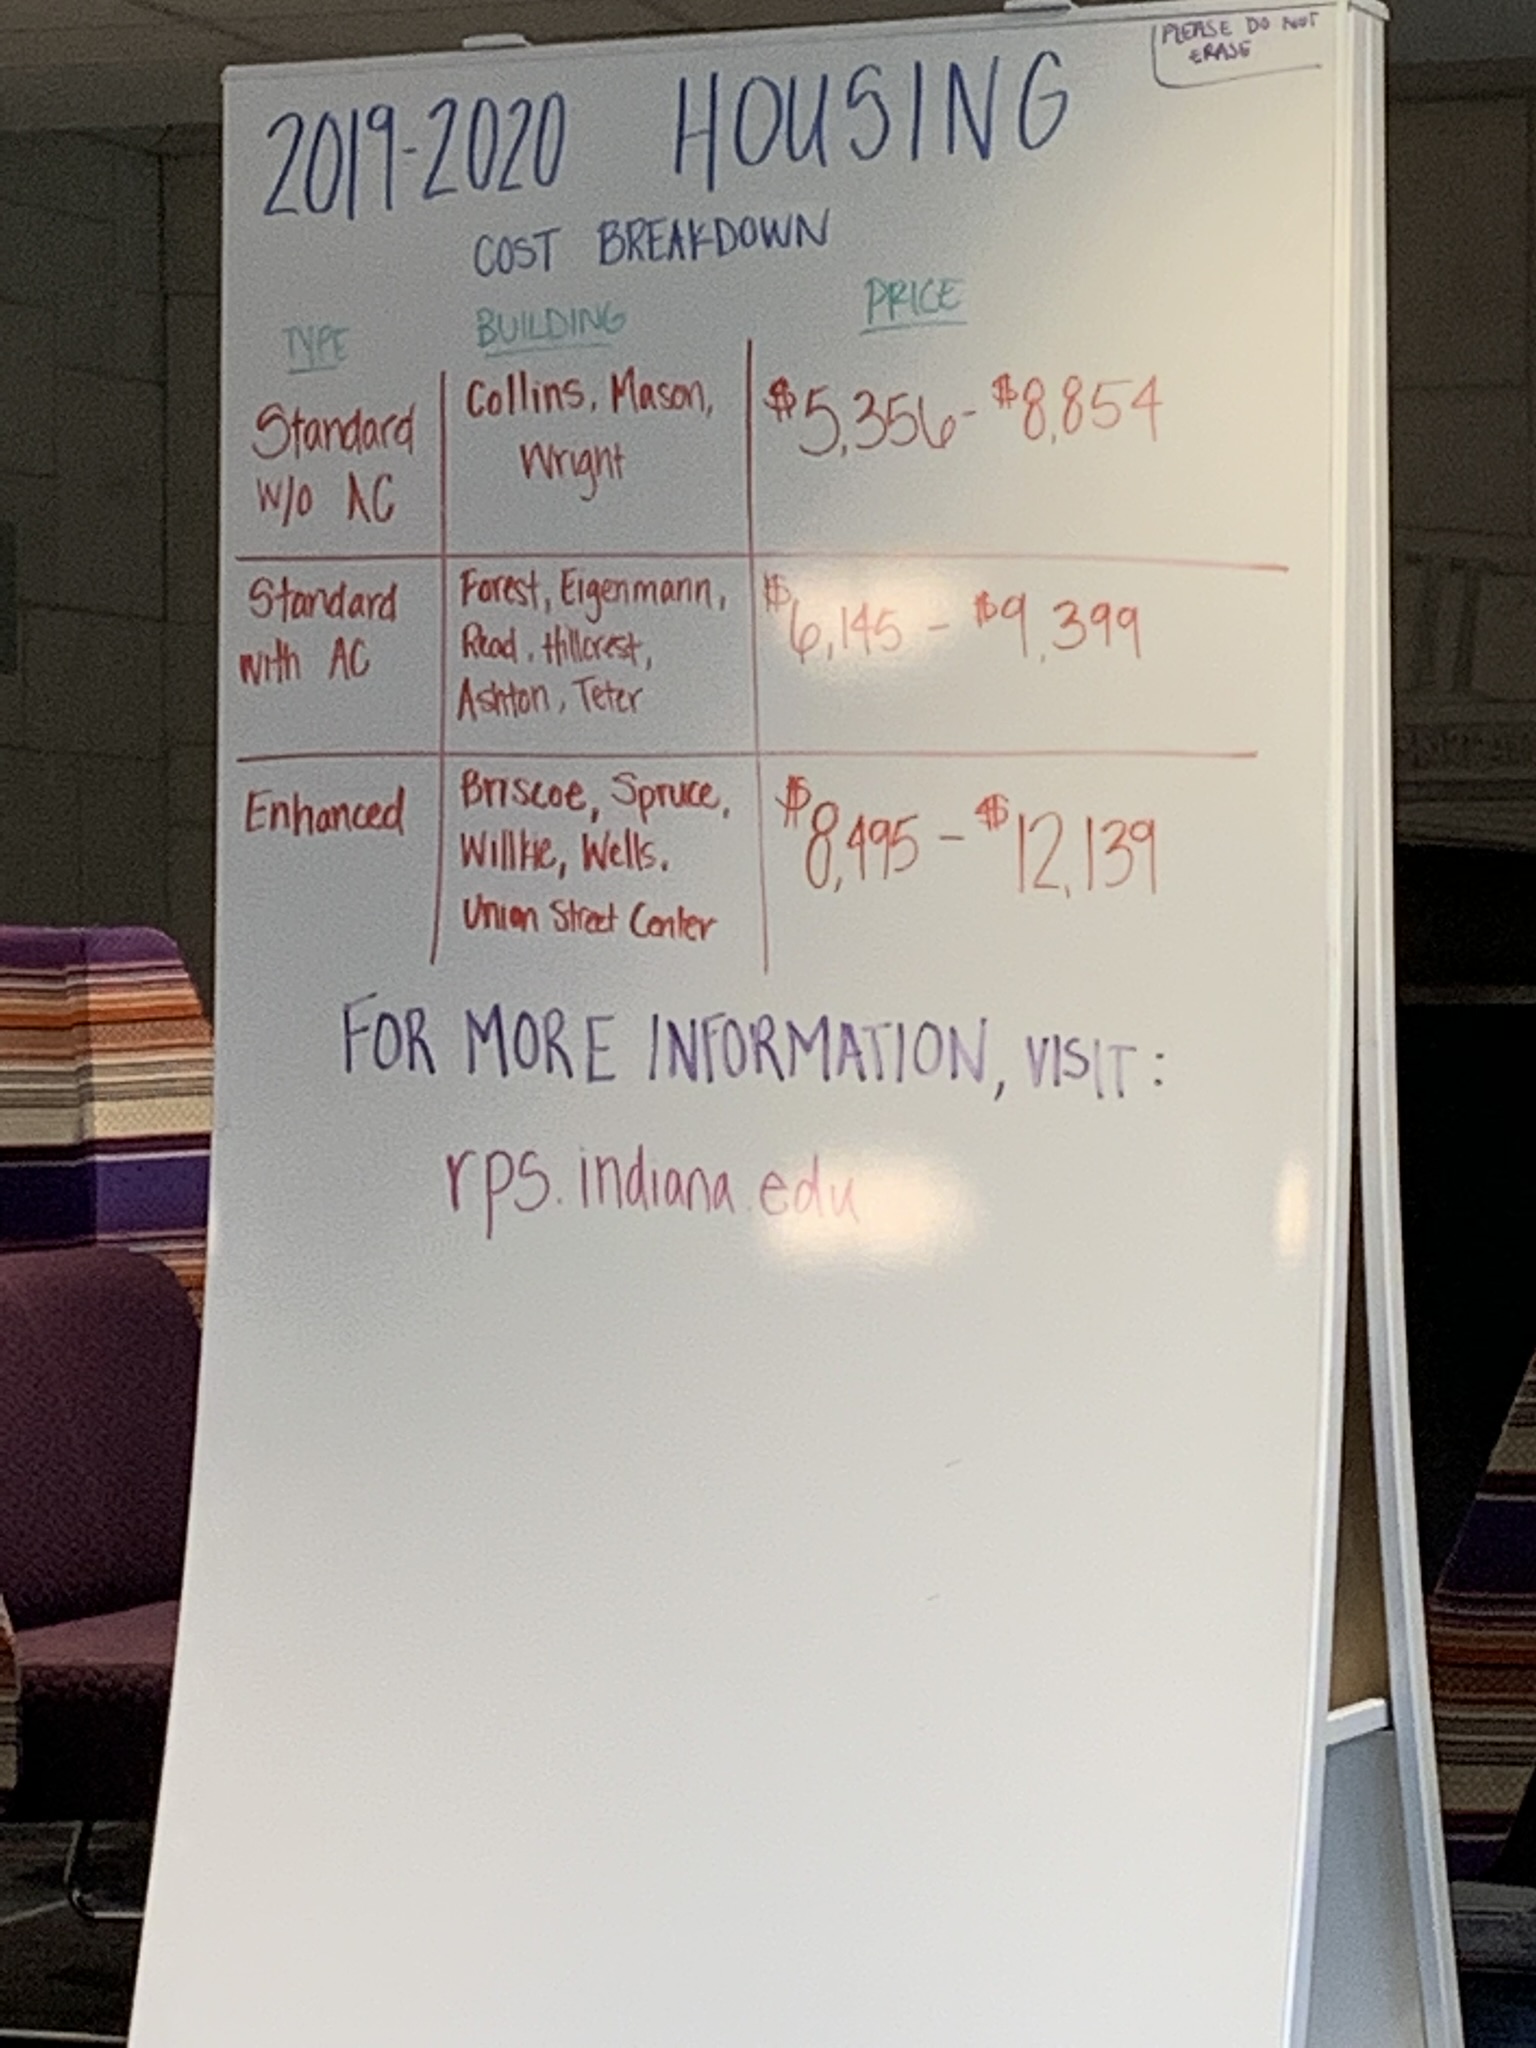 PLEASE DO NOT
ERASE
2019-2020 HOUSING
COST BREAKDOWN
TYPE BUILDING PRICE
Standard
w/o AC
Collins, Mason,
Wright
$5,356-$8,854
Standard
with AC
Forest, Eigenmann,
Read, Hillcrest,
Ashton, Teter
$6,145 - $9,399
Enhanced
Briscoe, Spruce,
Willkie, Wells,
Union Street Center
$8,495 - $12,139
FOR MORE INFORMATION, VISIT:
rps.indiana.edu